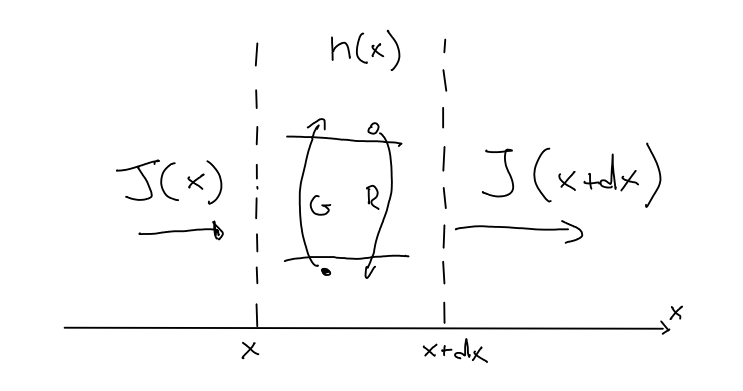 n(x)
J(x)
G
R
J(x+dx)
x
x
x+dx